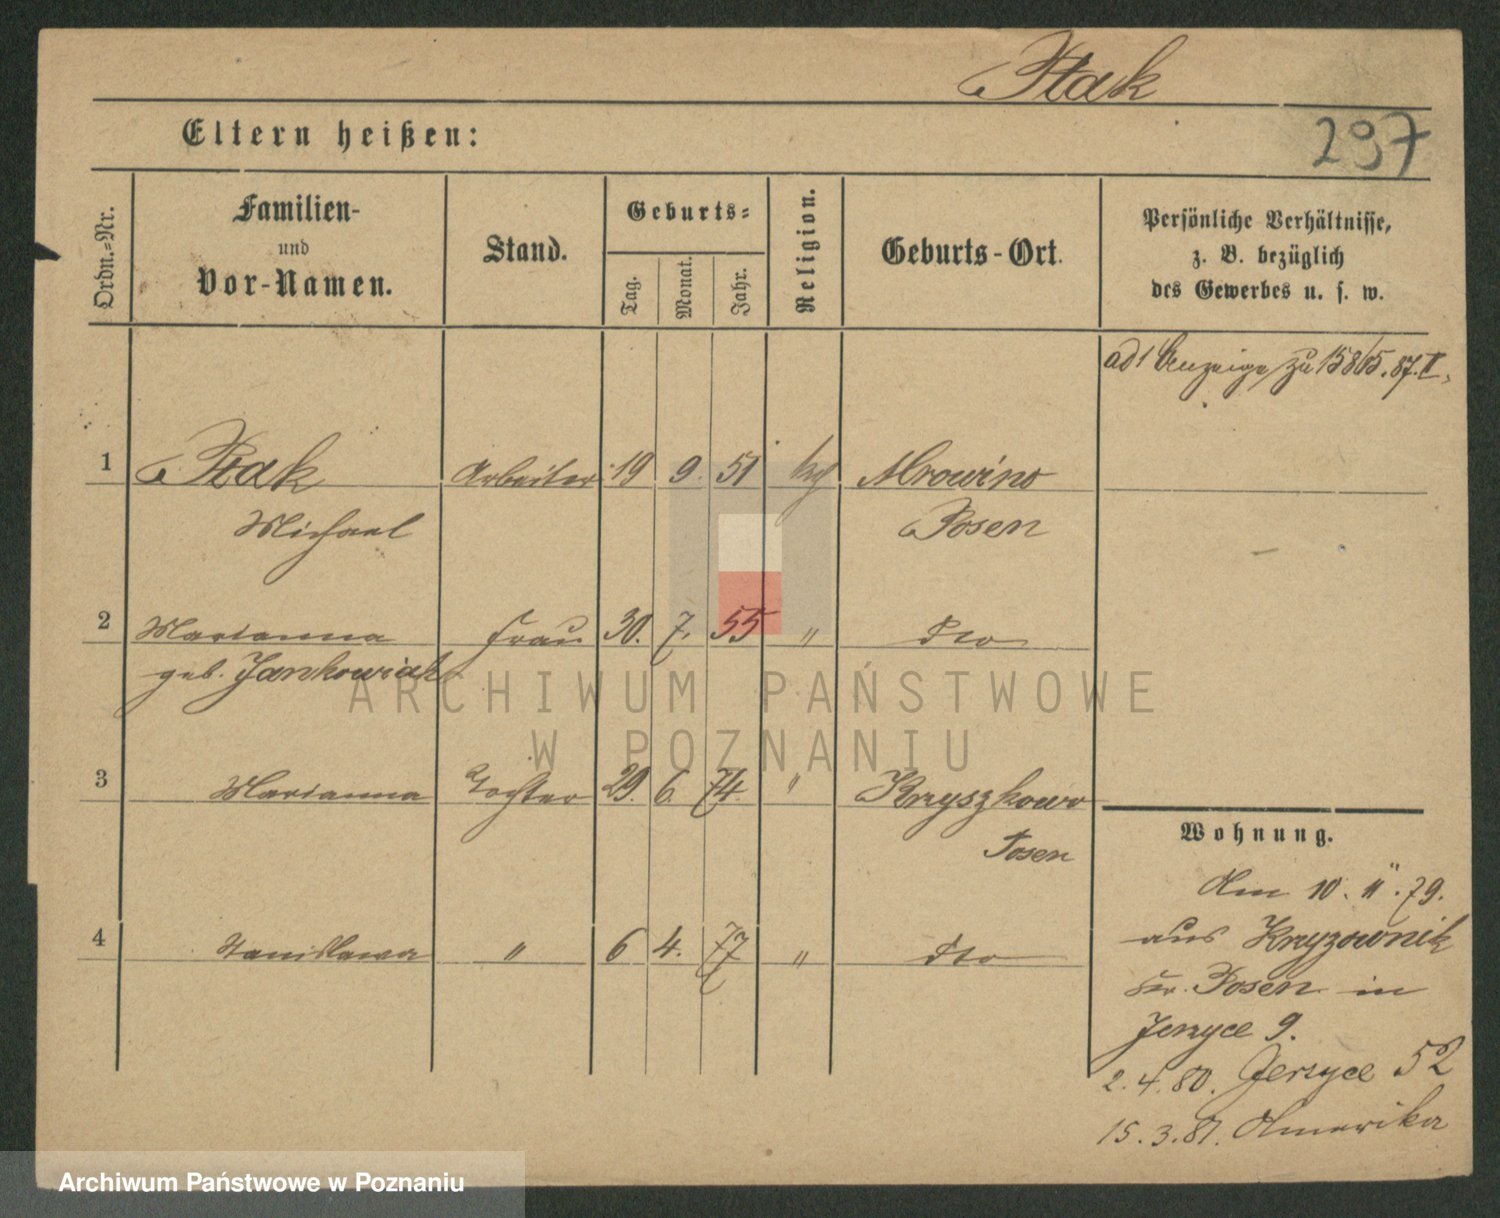 Ptak
297
Eltern heißen:
Ordn.=Nr.
Familien-
und
Vor-Namen.
Stand.
Geburts=
Tag.
Monat.
Jahr.
Religion.
Geburts-Ort.
Persönliche Verhältnisse,
z. B. bezüglich
des Gewerbes u. s. w.
ad 1 Anzeige zu 15865.87.II.
1 Ptak Arbeiter 19 9. 51 ktg Mrowino
Michael Posen
2 Marianna Frau 30. 7. 55 " dto
geb. Jankowiak
3 Marianna Tochter 29. 6. 74. " Krzyszkowo
Posen
4 Stanislawa " 6 4. 77 " dto
Wohnung.
Am 10. 11. 79.
aus Krzyzownik
Kr. Posen in
Jerzyce 9.
2. 4. 80. Jersyce 52
15. 3. 81. Amerika
ARCHIWUM PAŃSTWOWE
W POZNANIU
Archiwum Państwowe w Poznaniu